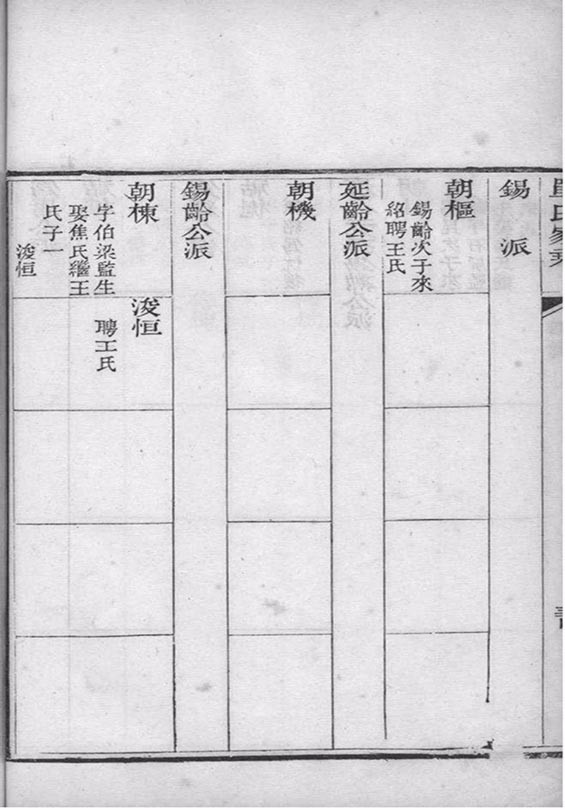 錫 派
朝樞
錫齡次子來
紹聘王氏
延齡公派
朝機
錫齡公派
朝棟
字伯梁監生
娶焦氏繼王
氏子一
浚恒
浚恒
聘王氏